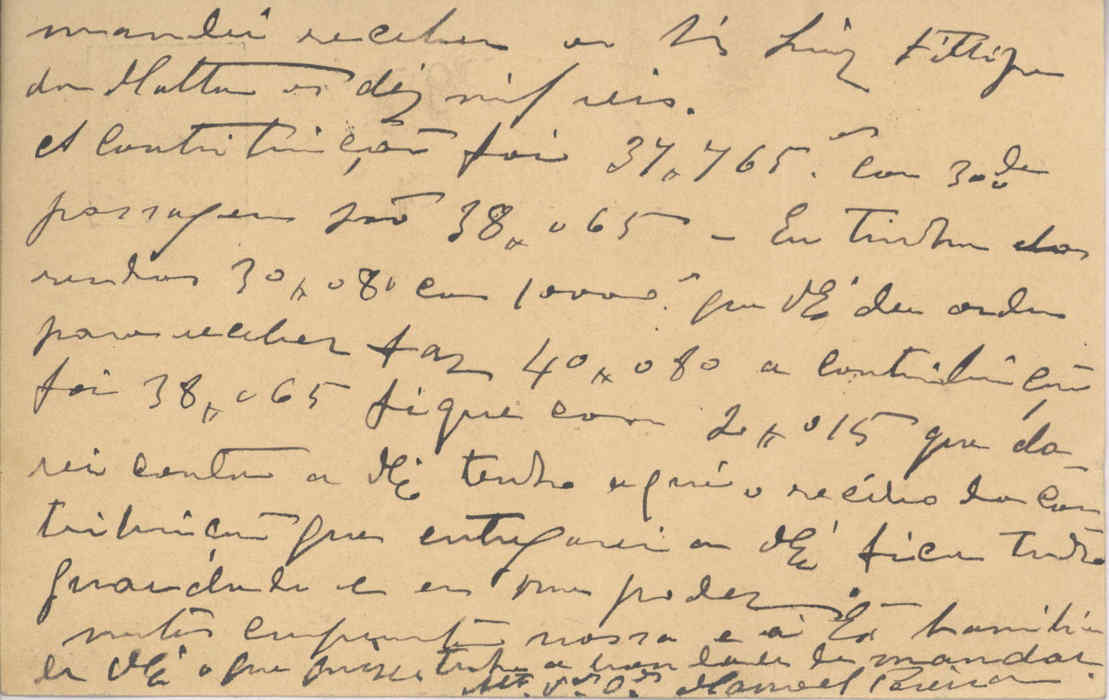 mandei receber ao Sr Luiz Fillipe
da Matta os dez mil reis.
A Contribuição foi 37$765. com 300 de
passagem são 38$065 - Eu tinha das
rendas 30$080 com 10000 que VExª deu ordem
para receber faz 40$080 a contribuição
foi 38$065 fiquei com 2$015 que da-
rei conta a VExª tenho aqui o recibo da con
tribuição que entregarei a VExª fica tudo
guardado e em meu poder.
muitos cumprimentos nossos e á Exª Familia
de VExª o que quizer tenha a bondade de mandar.
Manoel Pereira